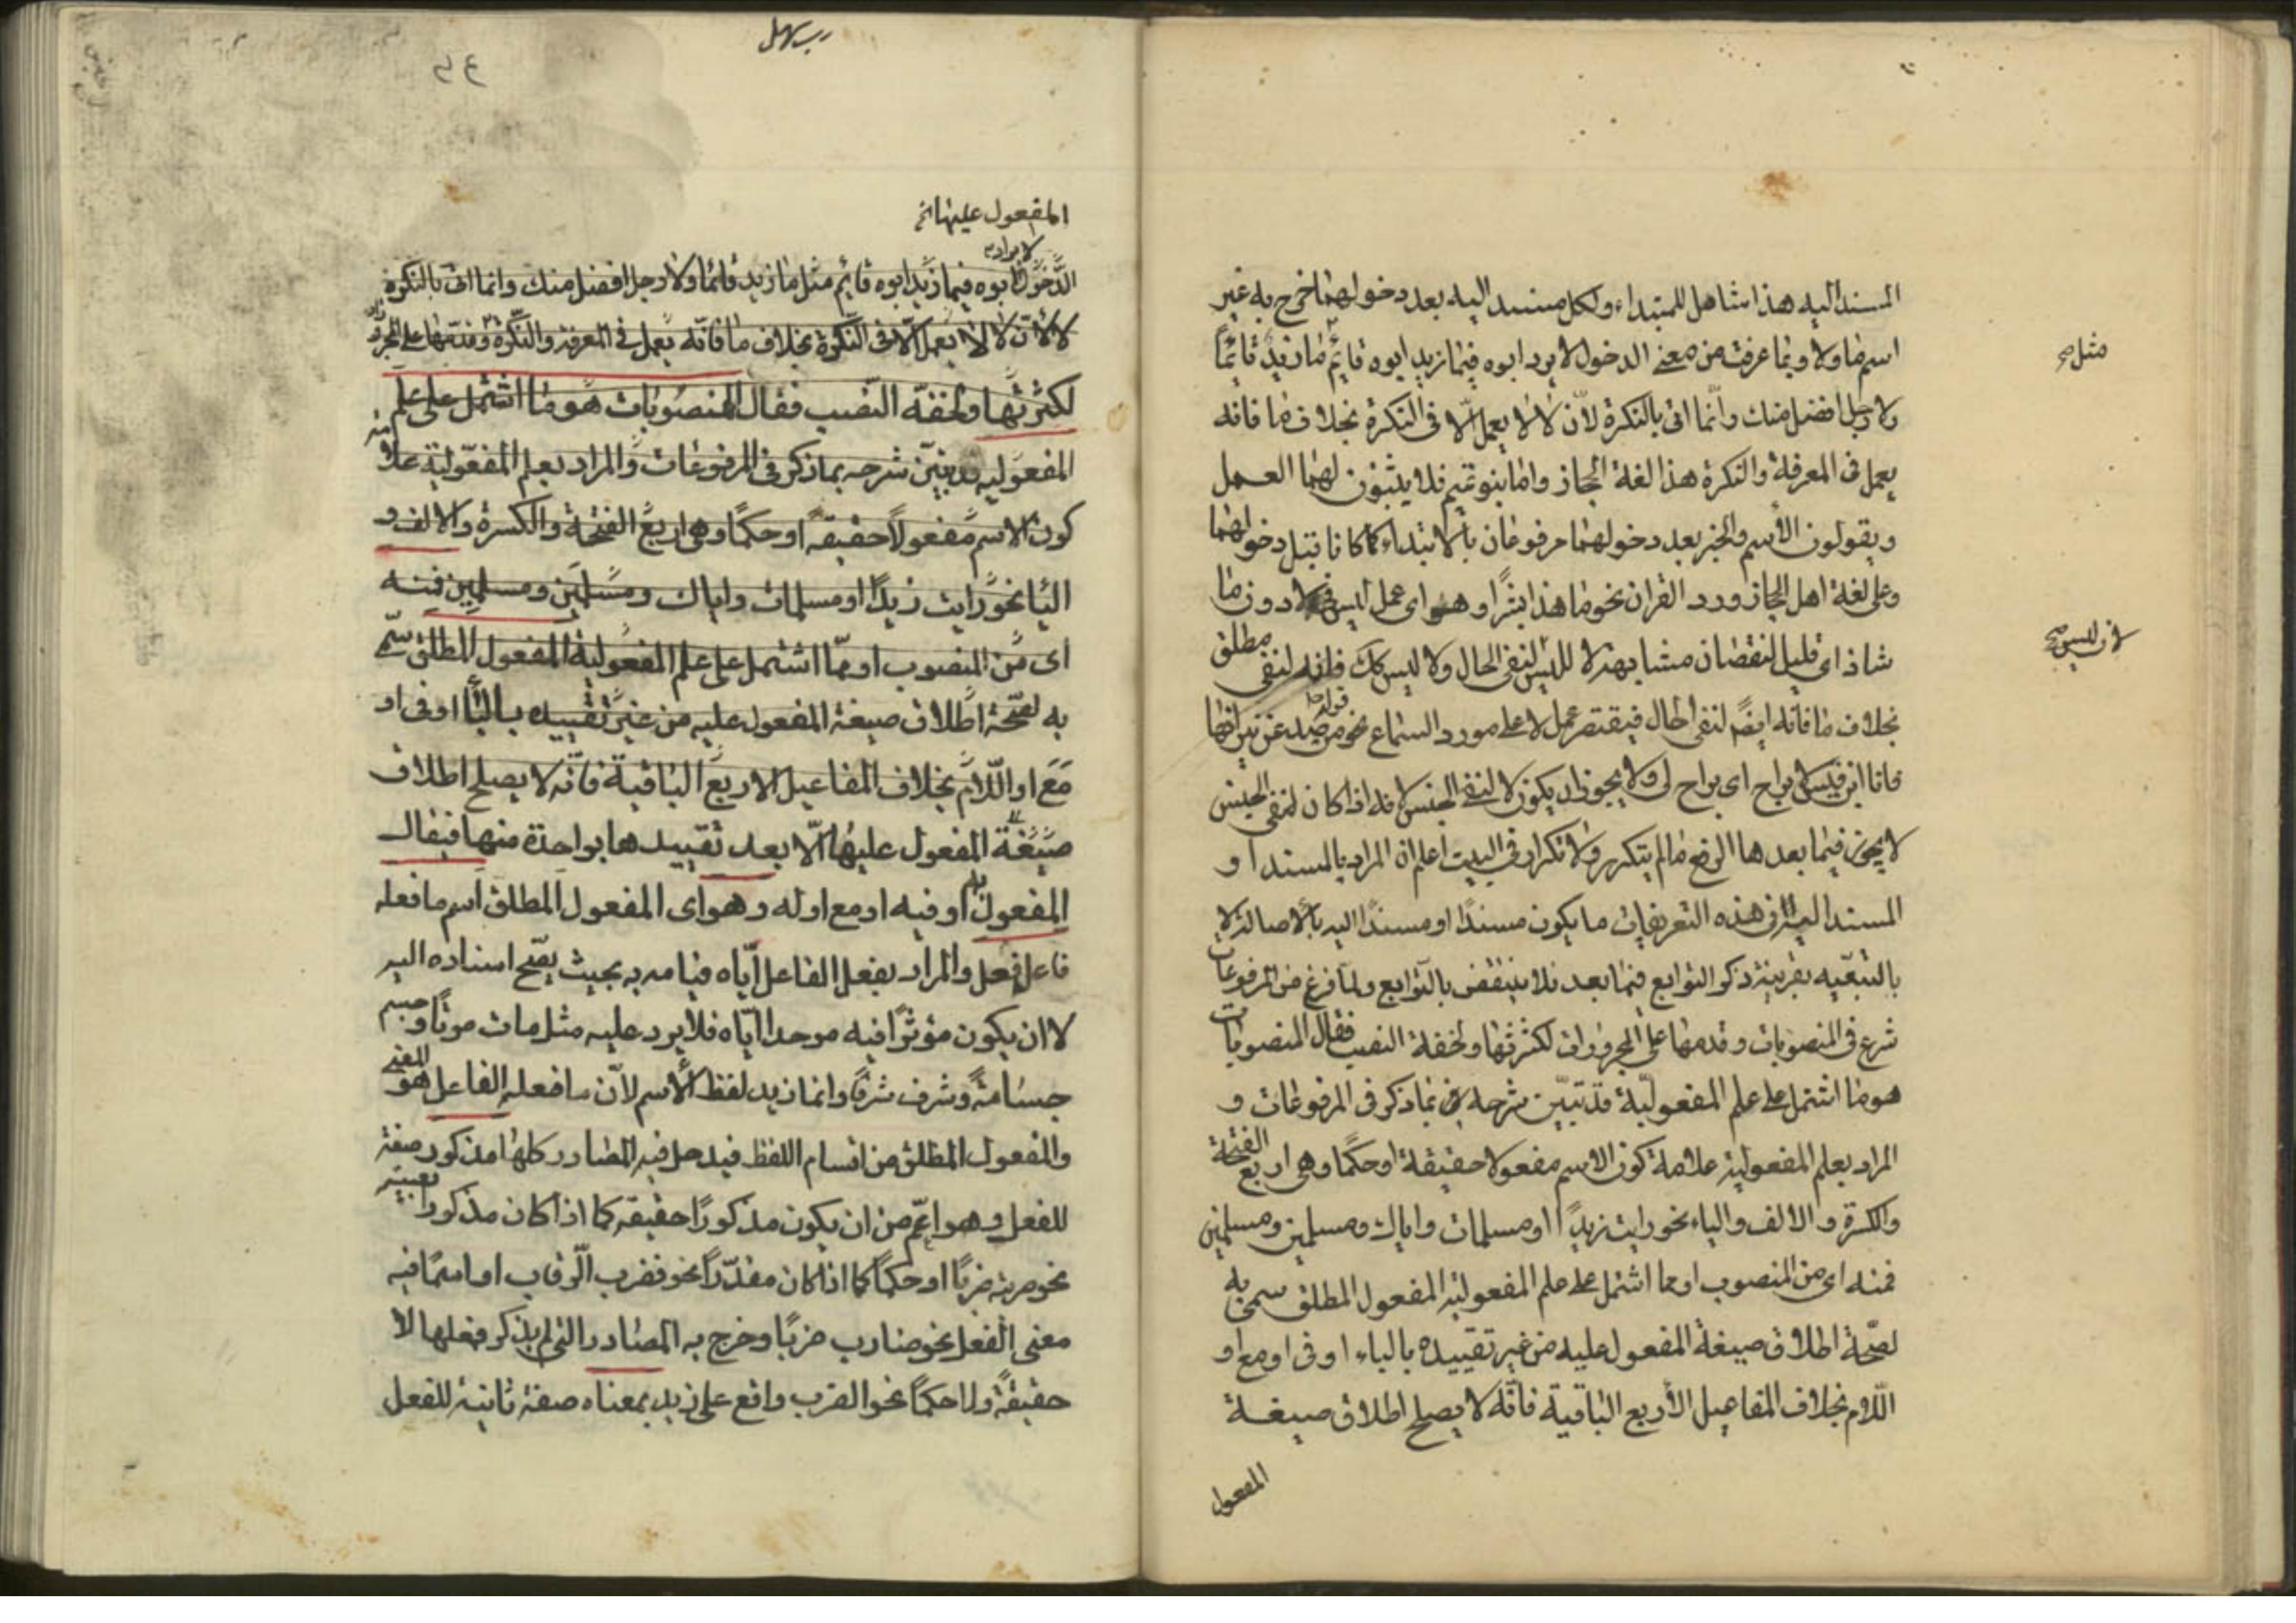 المسند اليه هذا شامل للمبتداء ولكل مسند اليه بعد دخولهما خرج به غير
اسم ما ولا وبما عرفت من معنى الدخول لا يرد ابوه فيما زيد ابوه قائم ما زيد قائما
مثل صح
ولا رجل افضل منك وانما اتى بالنكرة لان لا لا يعمل الا فى النكرة بخلاف ما فانه
يعمل فى المعرفة والنكرة هذا لغة الحجاز واما بنو تميم فلا يثبتون لهما العمل
ويقولون الاسم والخبر بعد دخولهما مرفوعان بالابتداء كما كانا قبل دخولهما
وعلى لغة اهل الحجاز ورد القران نحو ما هذا بشرا وهو اى عمل ليس فى لا دون ما
شاذ اى قليل لنقصان مشابهة لا لليس لنفى الحال ولا ليس كك فانه لنفى مطلق
لان ليس صح
بخلاف ما فانه ايضا لنفى الحال فيقتصر عمل لا على مورد السماع نحو قوله من صد عن نيرانها
فانا ابن قيس لا براح اى براح لى ولا يجوز ان يكون لا لنفى الجنس لانه اذا كان لنفى الجنس
لا يجوز فيما بعدها الرفع ما لم يتكرر ولا تكرار فى البيت اعلم ان المراد بالمسند او
المسند اليه فى هذه التعريفات ما يكون مسندا او مسندا اليه بالاصالة لا
بالتبعيه بقرينة ذكر التوابع فيما بعد فلا ينتقض بالتوابع ولما فرغ من المرفوعات
شرع فى المنصوبات وقدمها على المجرورات لكثرتها ولخفة النصب فقال المنصوبات
هو ما اشتمل على علم المفعولية قد تبين شرحه بما ذكر فى المرفوعات و
المراد بعلم المفعولية علامة كون الاسم مفعولا حقيقة او حكما وهى اربع الفتحة
والكسرة والالف والياء نحو رايت زيدا او مسلمات واياك ومسلمين ومسلمين
فمنه اى من المنصوب او مما اشتمل على علم المفعولية المفعول المطلق سمى به
لصحة اطلاق صيغة المفعول عليه من غير تقييده بالباء او فى او مع او
اللام بخلاف المفاعيل الاربع الباقية فانه لا يصلح اطلاق صيغة
المفعول
المفعول عليها
لا يراد
الدخول ابوه فيما زيد ابوه قايم مثل ما زيد قائما ولا رجل افضل منك وانما اتى بالنكرة
لان لا لا يعمل الا فى النكرة بخلاف ما فانه يعمل فى المعرفة والنكرة وقدمها على
لكثرتها ولخفة النصب فقال المنصوبات هو ما اشتمل على علم
المفعوليه قد تبين شرحه بما ذكر فى المرفوعات والمراد بعلم المفعولية علامة
كون الاسم مفعولا حقيقة او حكما وهى اربع الفتحة والكسرة والالف و
اليا نحو رايت زيدا او مسلمات واياك ومسلمين ومسلمين فمنه
اى من المنصوب او مما اشتمل على علم المفعولية المفعول المطلق سمى
به لصحة اطلاق صيغة المفعول عليه من غير تقييده بالبا او فى او
مع او اللام بخلاف المفاعيل الاربع الباقية فانه لا يصلح اطلاق
صيغة المفعول عليها الا بعد تقييدها بواحدة منها فيقال
المفعول به او فيه او مع او له وهو اى المفعول المطلق اسم ما فعله
فاعل فعل والمراد بفعل الفاعل اياه قيامه به بحيث يصح اسناده اليه
لا ان يكون مؤثرا فيه موجدا اياه فلا يرد عليه مثل مات موتا وجسم
جسامة وشرف شرفا وانما زيد لفظ الاسم لان ما فعله الفاعل هو المعنى
والمفعول المطلق من اقسام اللفظ فيدخل فيه المصادر كلها مذكور صفة
للفعل وهو اعم من ان يكون مذكورا حقيقة كما اذا كان مذكورا بعينه
نحو ضربته ضربا او حكما كما اذا كان مقدرا نحو فضرب الرقاب او اسما فيه
معنى الفعل نحو ضارب ضربا وخرج به المصادر التى لم يذكر فعلها لا
حقيقة ولا حكما نحو الضرب واقع على زيد بمعناه صفة ثانية للفعل